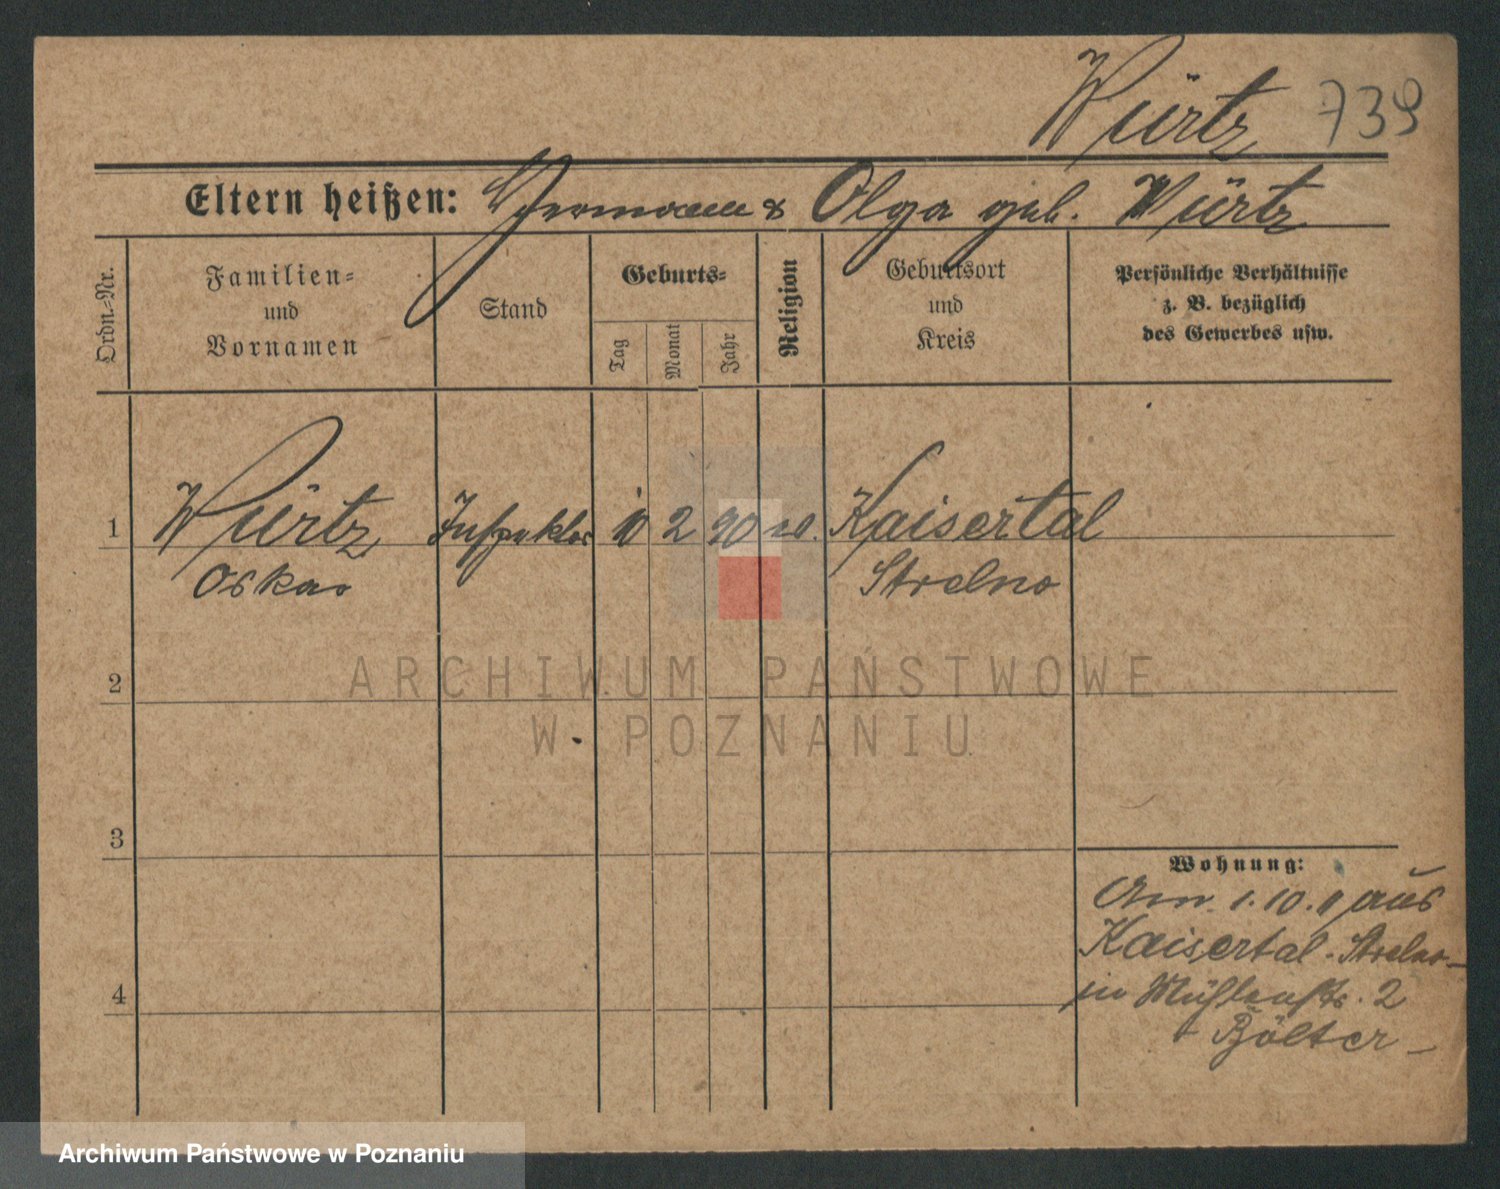 Würtz 739
Eltern heißen: Hermann & Olga geb. Würtz
Ordn.-Nr.
Familien-
und
Vornamen
Stand
Geburts-
Tag
Monat
Jahr
Religion
Geburtsort
und
Kreis
Persönliche Verhältnisse
z. B. bezüglich
des Gewerbes usw.
1 Würtz Inspektor 2 90 Kaisertal
Oskar Strelno
2
3
4
Wohnung:
Am 1.10.11 aus
Kaisertal-Strelno-
in Mühlenstr. 2
Bölter-
ARCHIWUM PAŃSTWOWE
W POZNANIU
Archiwum Państwowe w Poznaniu